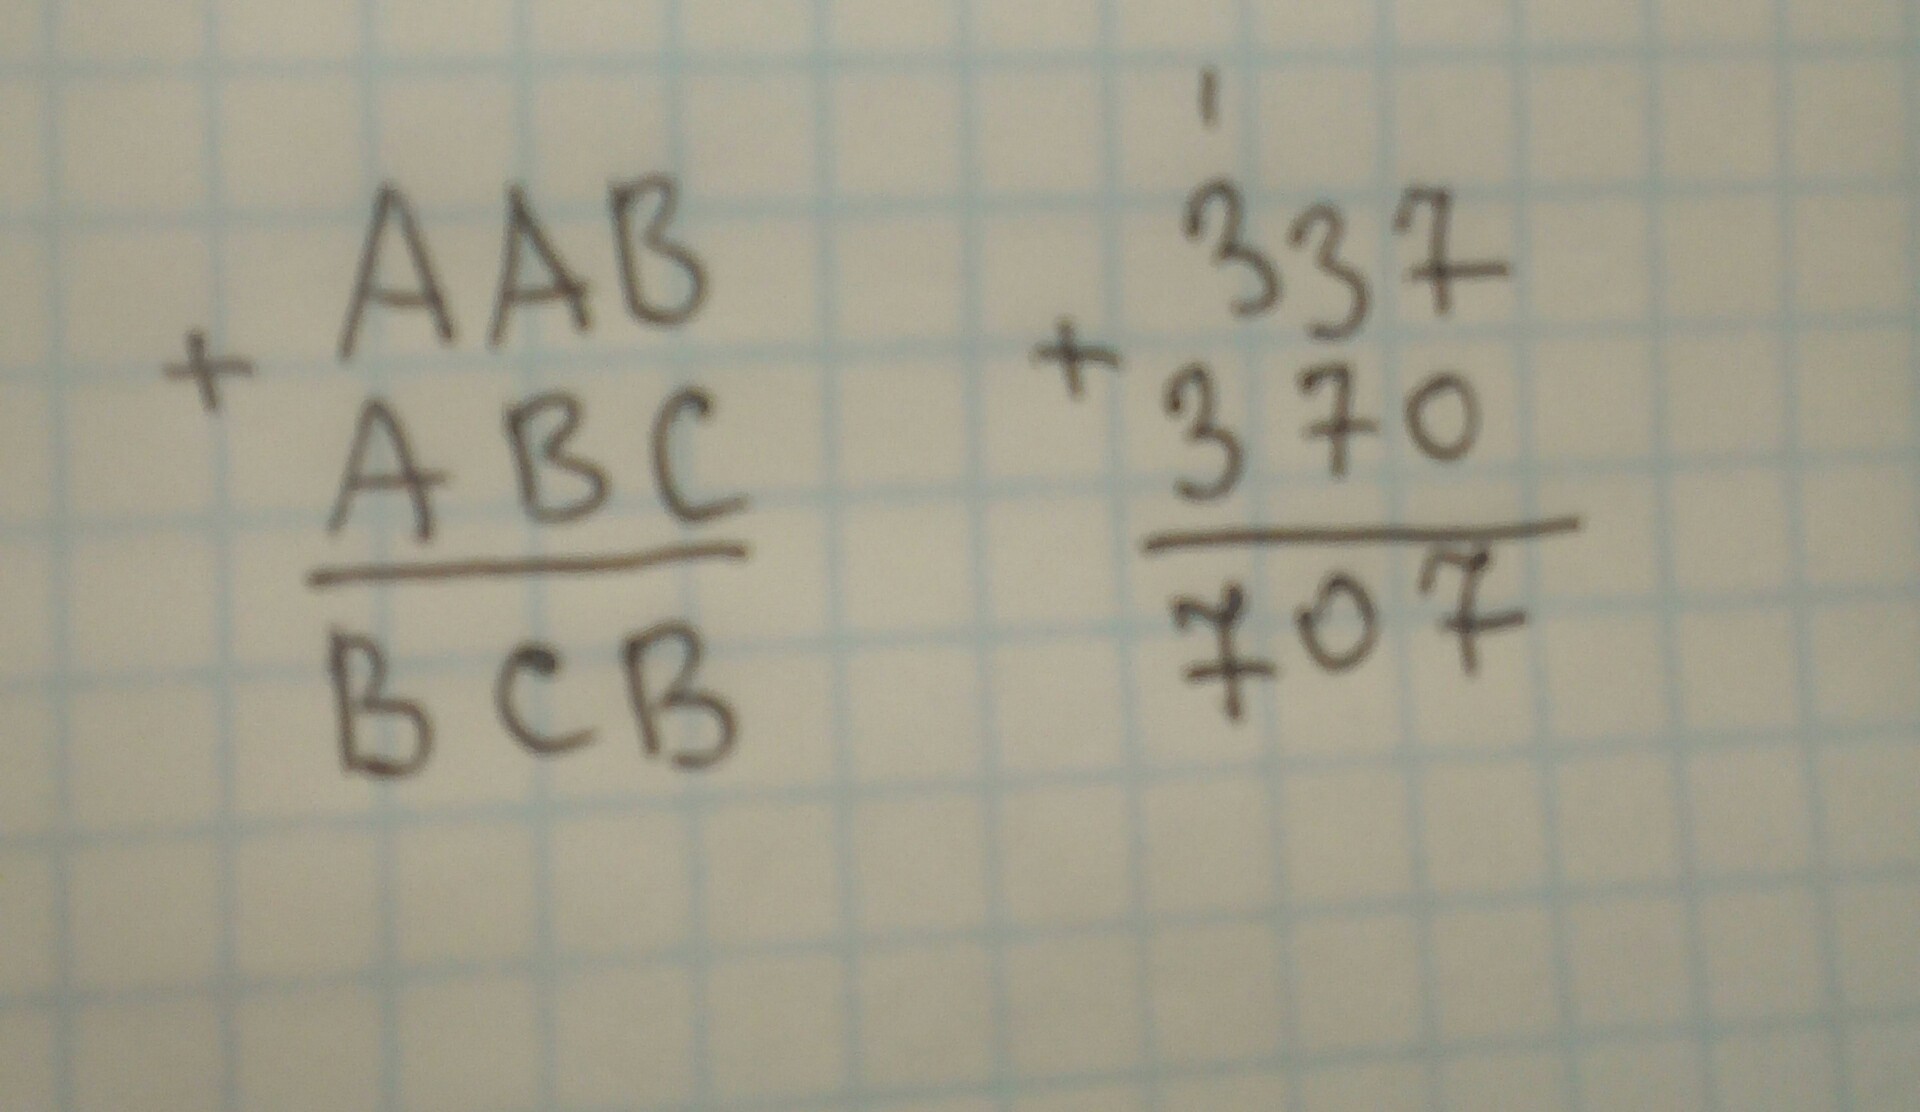 AAB
+ ABC
BCB
1
337
+ 370
707